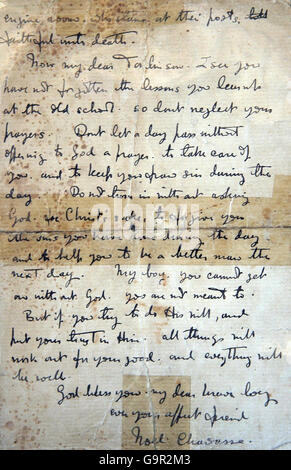 engine room, who stand at their posts,
faithful unto death.
Now my dear I see you
have not forgotten the lessons you learnt
at the old school. so don't neglect your
prayers. Don't let a day pass without
offering to God a prayer. to take care of
you. and to keep you from sin during the
day. Do not turn in without asking
God. for Christ sake. to forgive you
the sins you have done during the day.
and to help you to be a better man the
next day. My boy. you cannot get
on without God. you are not meant to.
But if you try to do His will, and
put your trust in Him. all things will
work out for your good. and everything will
be well.
God bless you. my dear brave boy
ever your affect friend
Noel Chavasse.
alamy
alamy
Image ID: G9R2M3
www.alamy.com